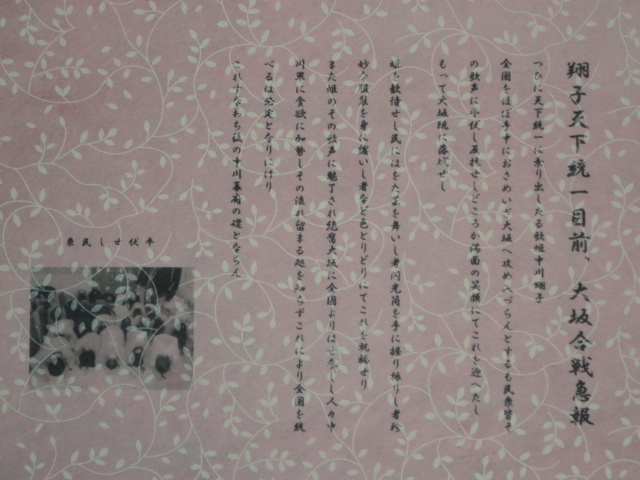 翔子天下統一目前、大坂合戦急報
つひに天下統一に乗り出したる歌姫中川翔子
全国をほぼ手中におさめいざ大坂へ攻め入づらんとするも民衆皆そ
の歌声に平伏し反抗せしどころか満面の笑顔にてこれを迎へたし
もって大坂現に落城せし
姫を歓待せし民にはをた芸を舞いし者閃光筒を手に握り締めし者
妙な服装を身に纏いし者など色とりどりにてこれを祝福せり
また姫のその歌声に魅了され絶賛大坂に全国よりはせ参じし人々中
川軍に貪欲に加勢しその流れ留まる処を知らずこれにより全国を統
べるは必定となりにけり
これすなわち後の中川幕府の礎とならん
平伏せし民衆